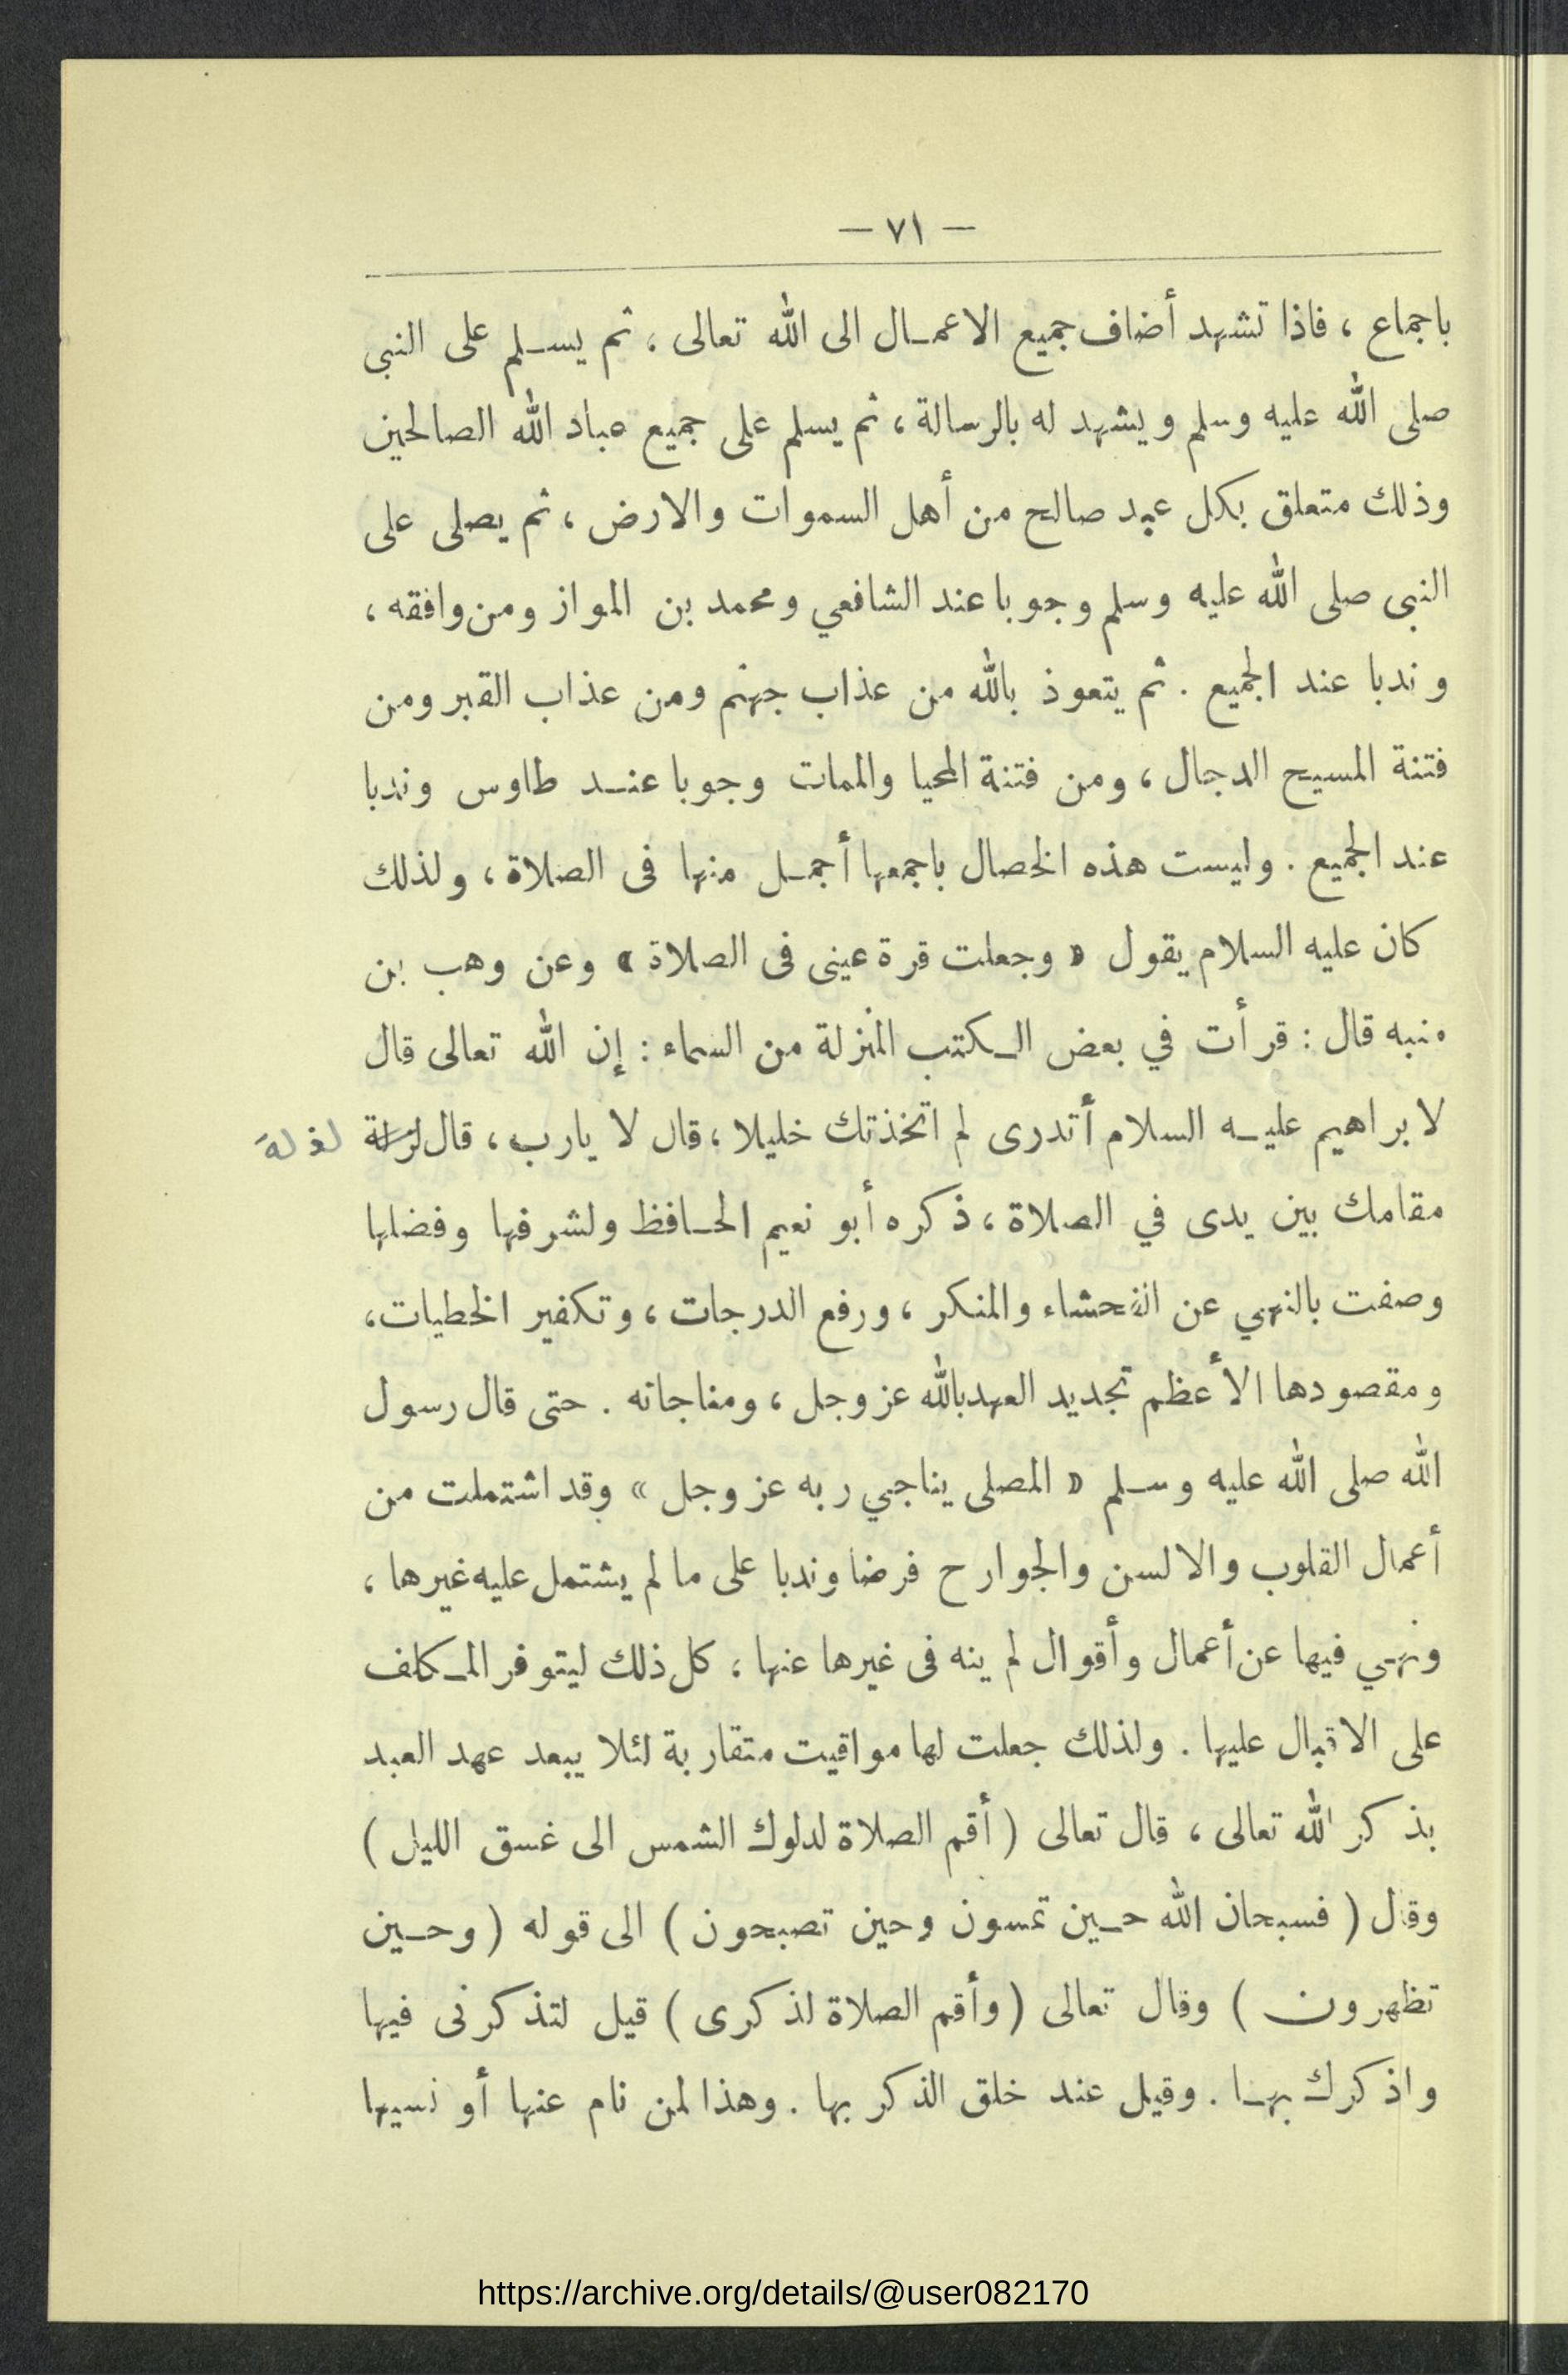 — ٧١ —
باجماع ، فاذا تشهد أضاف جميع الاعمـال الى الله تعالى ، ثم يسـلم على النبى
صلى الله عليه وسلم ويشهد له بالرسالة ، ثم يسلم على جميع عباد الله الصالحين
وذلك متعلق بكل عبد صالح من أهل السموات والارض ، ثم يصلى على
النبى صلى الله عليه وسلم وجوبا عند الشافعي ومحمد بن المواز ومن وافقه ،
وندبا عند الجميع . ثم يتعوذ بالله من عذاب جهنم ومن عذاب القبر ومن
فتنة المسيح الدجال ، ومن فتنة المحيا والممات وجوبا عنـد طاوس وندبا
عند الجميع . وليست هذه الخصال باجمعها أجمـل منها فى الصلاة ، ولذلك
كان عليه السلام يقول « وجعلت قرة عينى فى الصلاة » وعن وهب بن
منبه قال : قرأت في بعض الـكتب المنزلة من السماء : إن الله تعالى قال
لابراهيم عليـه السلام أتدرى لم اتخذتك خليلا ، قال لا يارب ، قال
مقامك بين يدى في الصلاة ، ذكره أبو نعيم الحـافظ ولشرفها وفضلها
وصفت بالنهي عن الفحشاء والمنكر ، ورفع الدرجات ، وتكفير الخطيات ،
ومقصودها الأعظم تجديد العهد بالله عز وجل ، ومناجاته . حتى قال رسول
الله صلى الله عليه وسـلم « المصلى يناجي ربه عز وجل » وقد اشتملت من
أعمال القلوب والالسن والجوارح فرضا وندبا على ما لم يشتمل عليه غيرها ،
ونهي فيها عن أعمال وأقوال لم ينه فى غيرها عنها ، كل ذلك ليتوفر المـكلف
على الاقبال عليها . ولذلك جعلت لها مواقيت متقاربة لئلا يبعد عهد العبد
بذكر الله تعالى ، قال تعالى ( أقم الصلاة لدلوك الشمس الى غسق الليل )
وقال ( فسبحان الله حـين تمسون وحين تصبحون ) الى قوله ( وحـين
تظهرون ) وقال تعالى ( وأقم الصلاة لذكرى ) قيل لتذكرنى فيها
واذكرك بهـا . وقيل عند خلق الذكر بها . وهذا لمن نام عنها أو نسيها
https://archive.org/details/@user082170